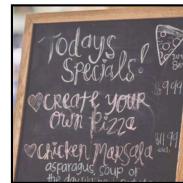 Today's
Specials!
CREATE YOUR
OWN PIZZA
9.99
CHICKEN MARSALA
11.99
asparagus, soup or